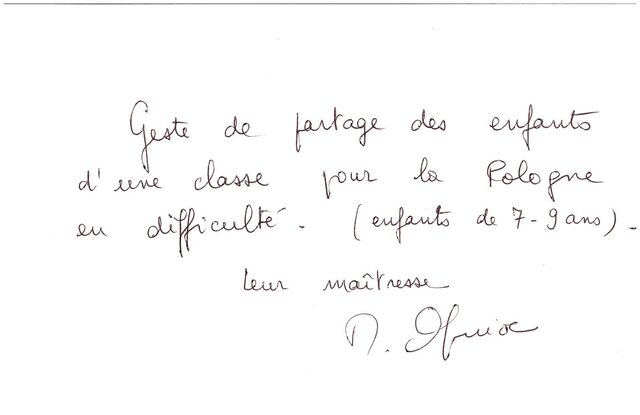 Geste de partage des enfants
d'une classe pour la Pologne
en difficulté. (enfants de 7-9 ans).
leur maîtresse